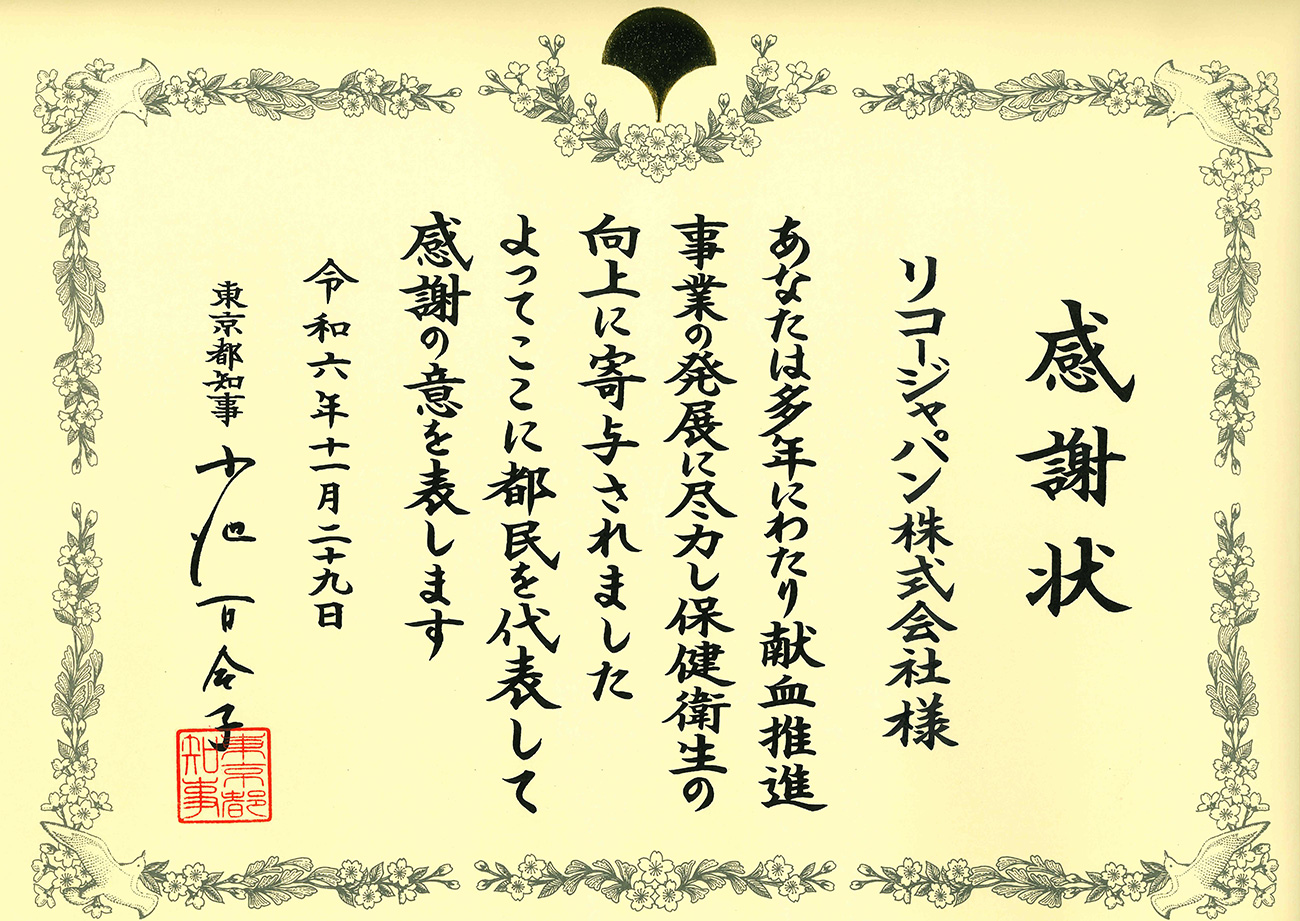 感謝状
リコージャパン株式会社様
あなたは多年にわたり献血推進
事業の発展に尽力し保健衛生の
向上に寄与されました
よってここに都民を代表して
感謝の意を表します
令和六年十一月二十九日
東京都知事 小池百合子
東京都
知事